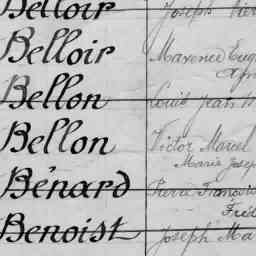 Belloir Joseph
Belloir Maxence
Bellon Louis Jean
Bellon Victor Marcel
Marie Josep
Bénard Pierre François
Benoist Joseph Ma